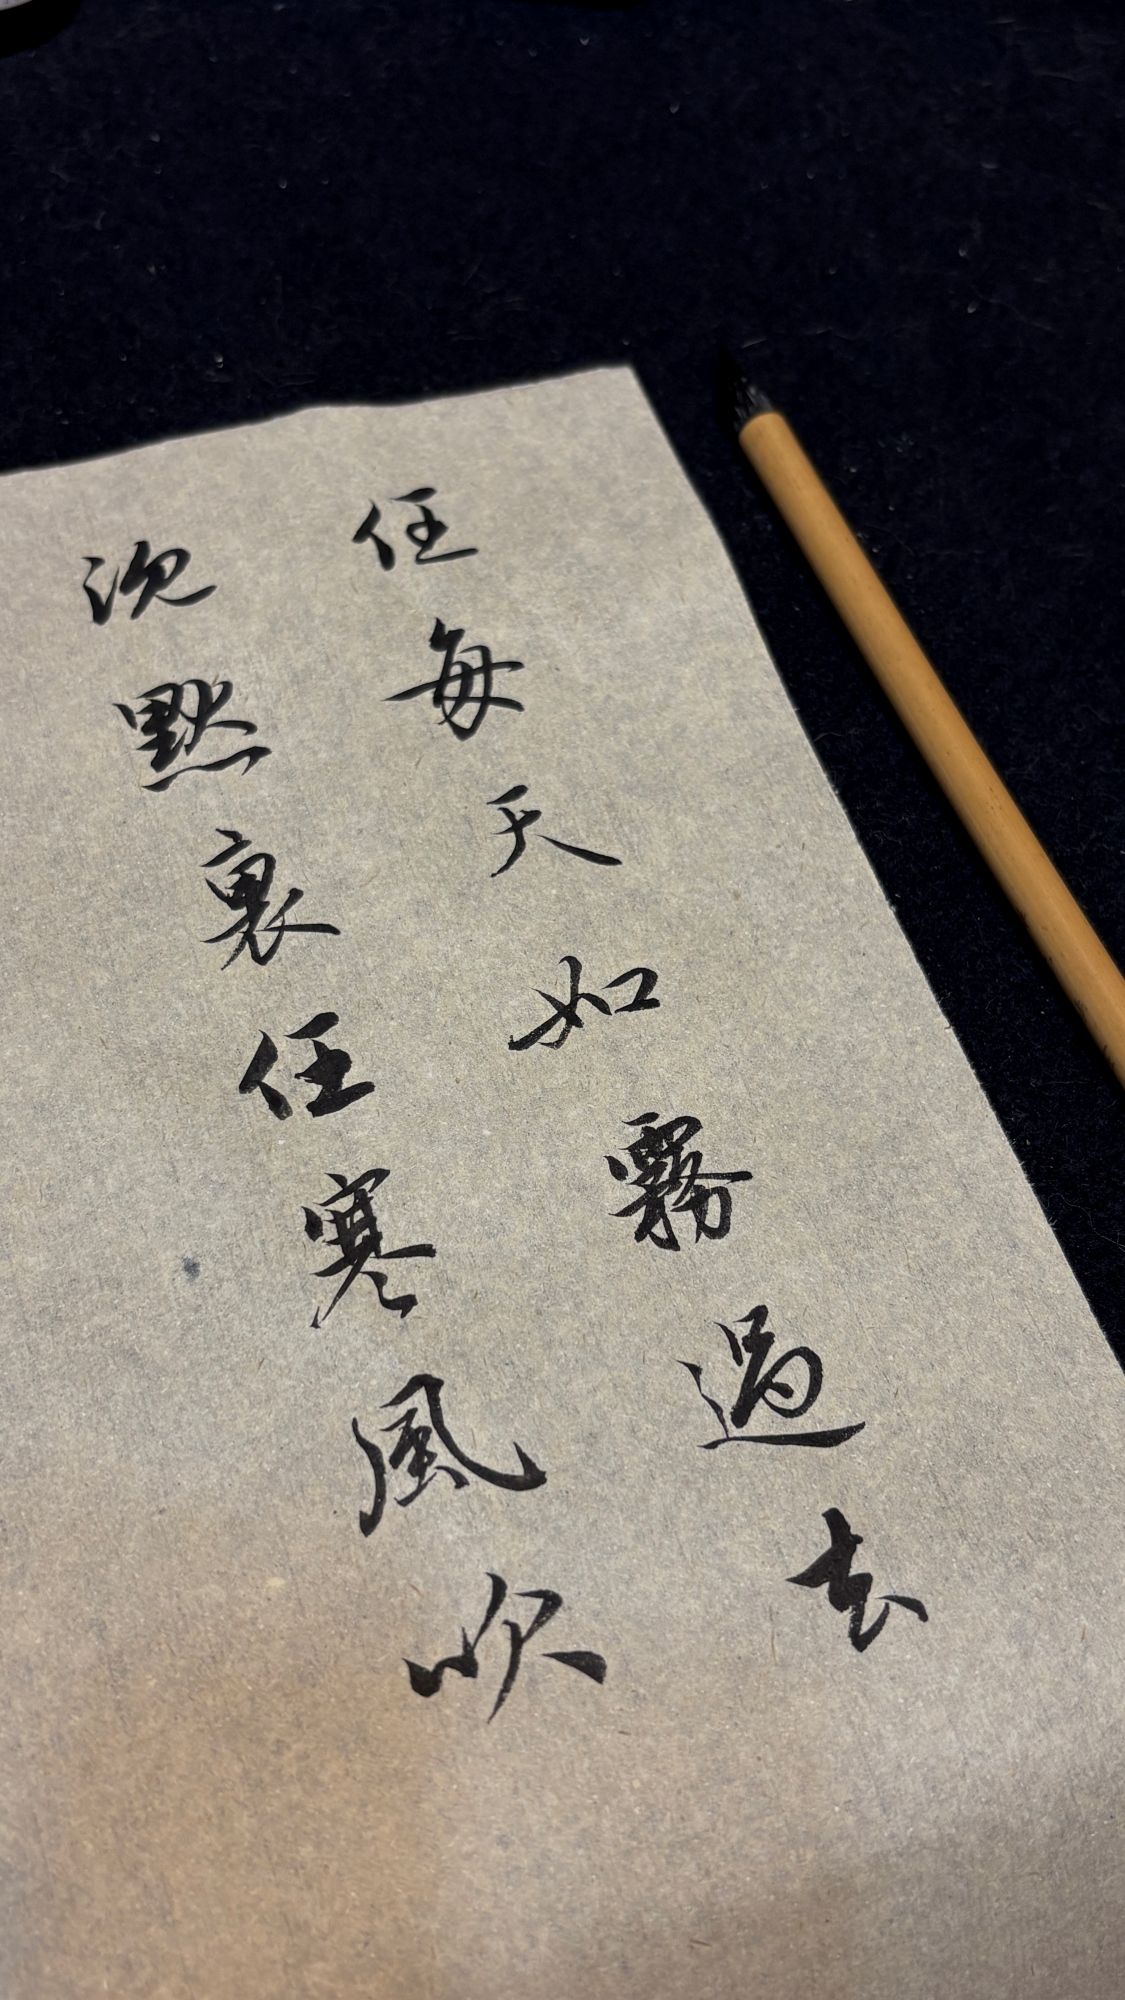 任每天如霧過去
沈默裏任寒風吹